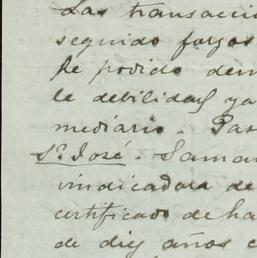 Las transacci
seguido forzos
he podido dem
la debilidad ya
mediario. Pas
Sn. José. Sama
vindicadora de
certificado de ha
de diez años c